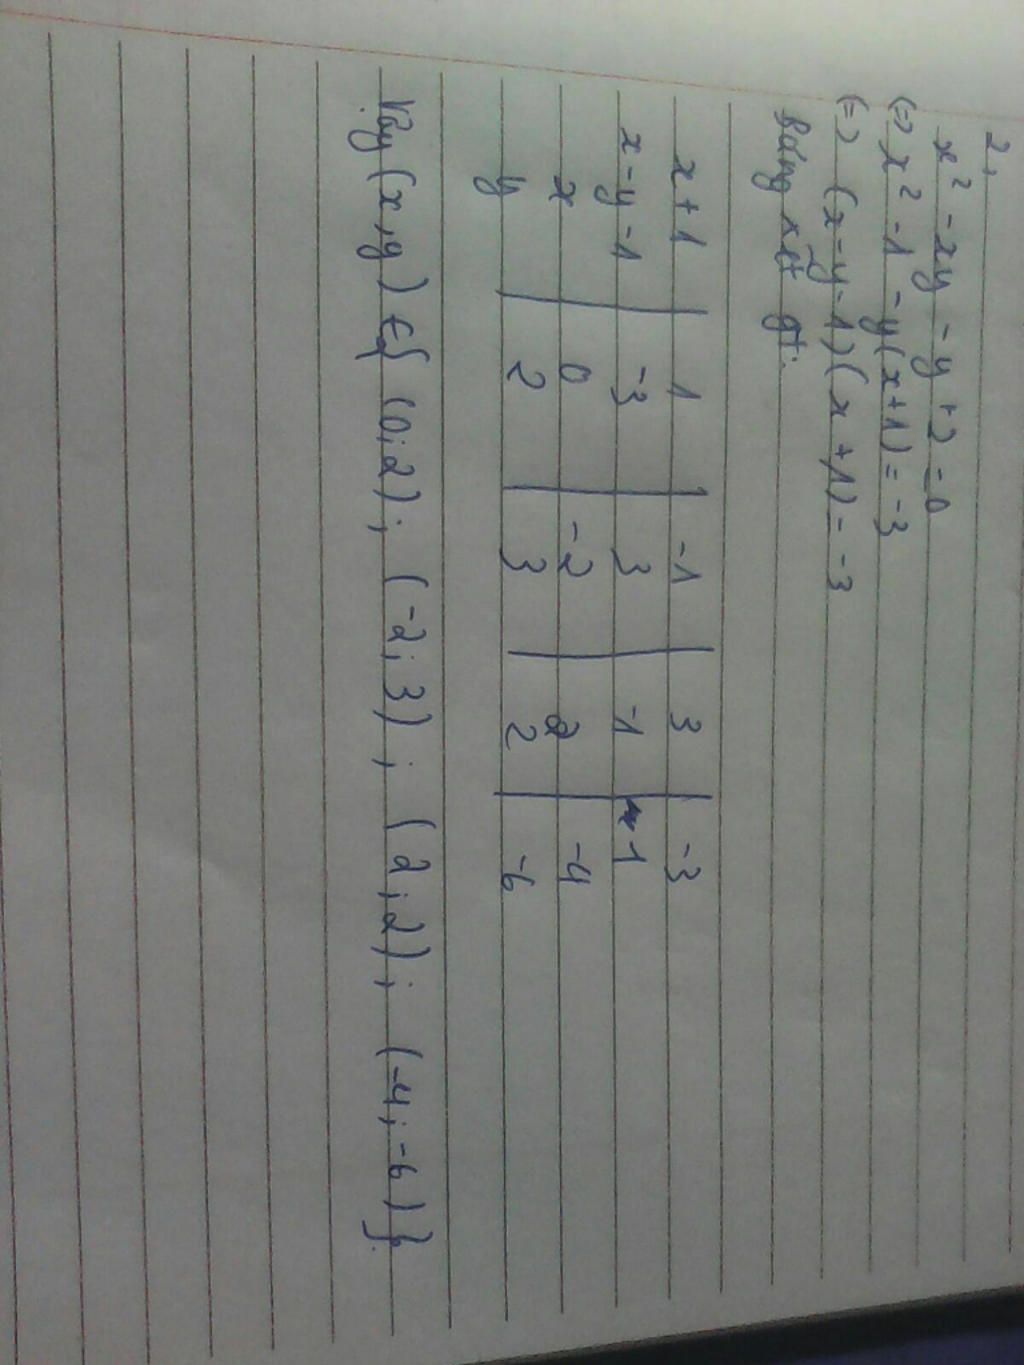 2,
x² - xy - y + 2 = 0
(=> x² - 1 - y(x+1) = -3
(=> (x-y-1)(x+1) = -3
Bảng xét gt:
x+1 | 1 | -1 | 3 | -3
x-y-1 | -3 | 3 | -1 | 1
x | 0 | -2 | 2 | -4
y | 2 | 3 | 2 | -6
Vậy (x,y) ∈ { (0;2); (-2;3); (2;2); (-4;-6) }.